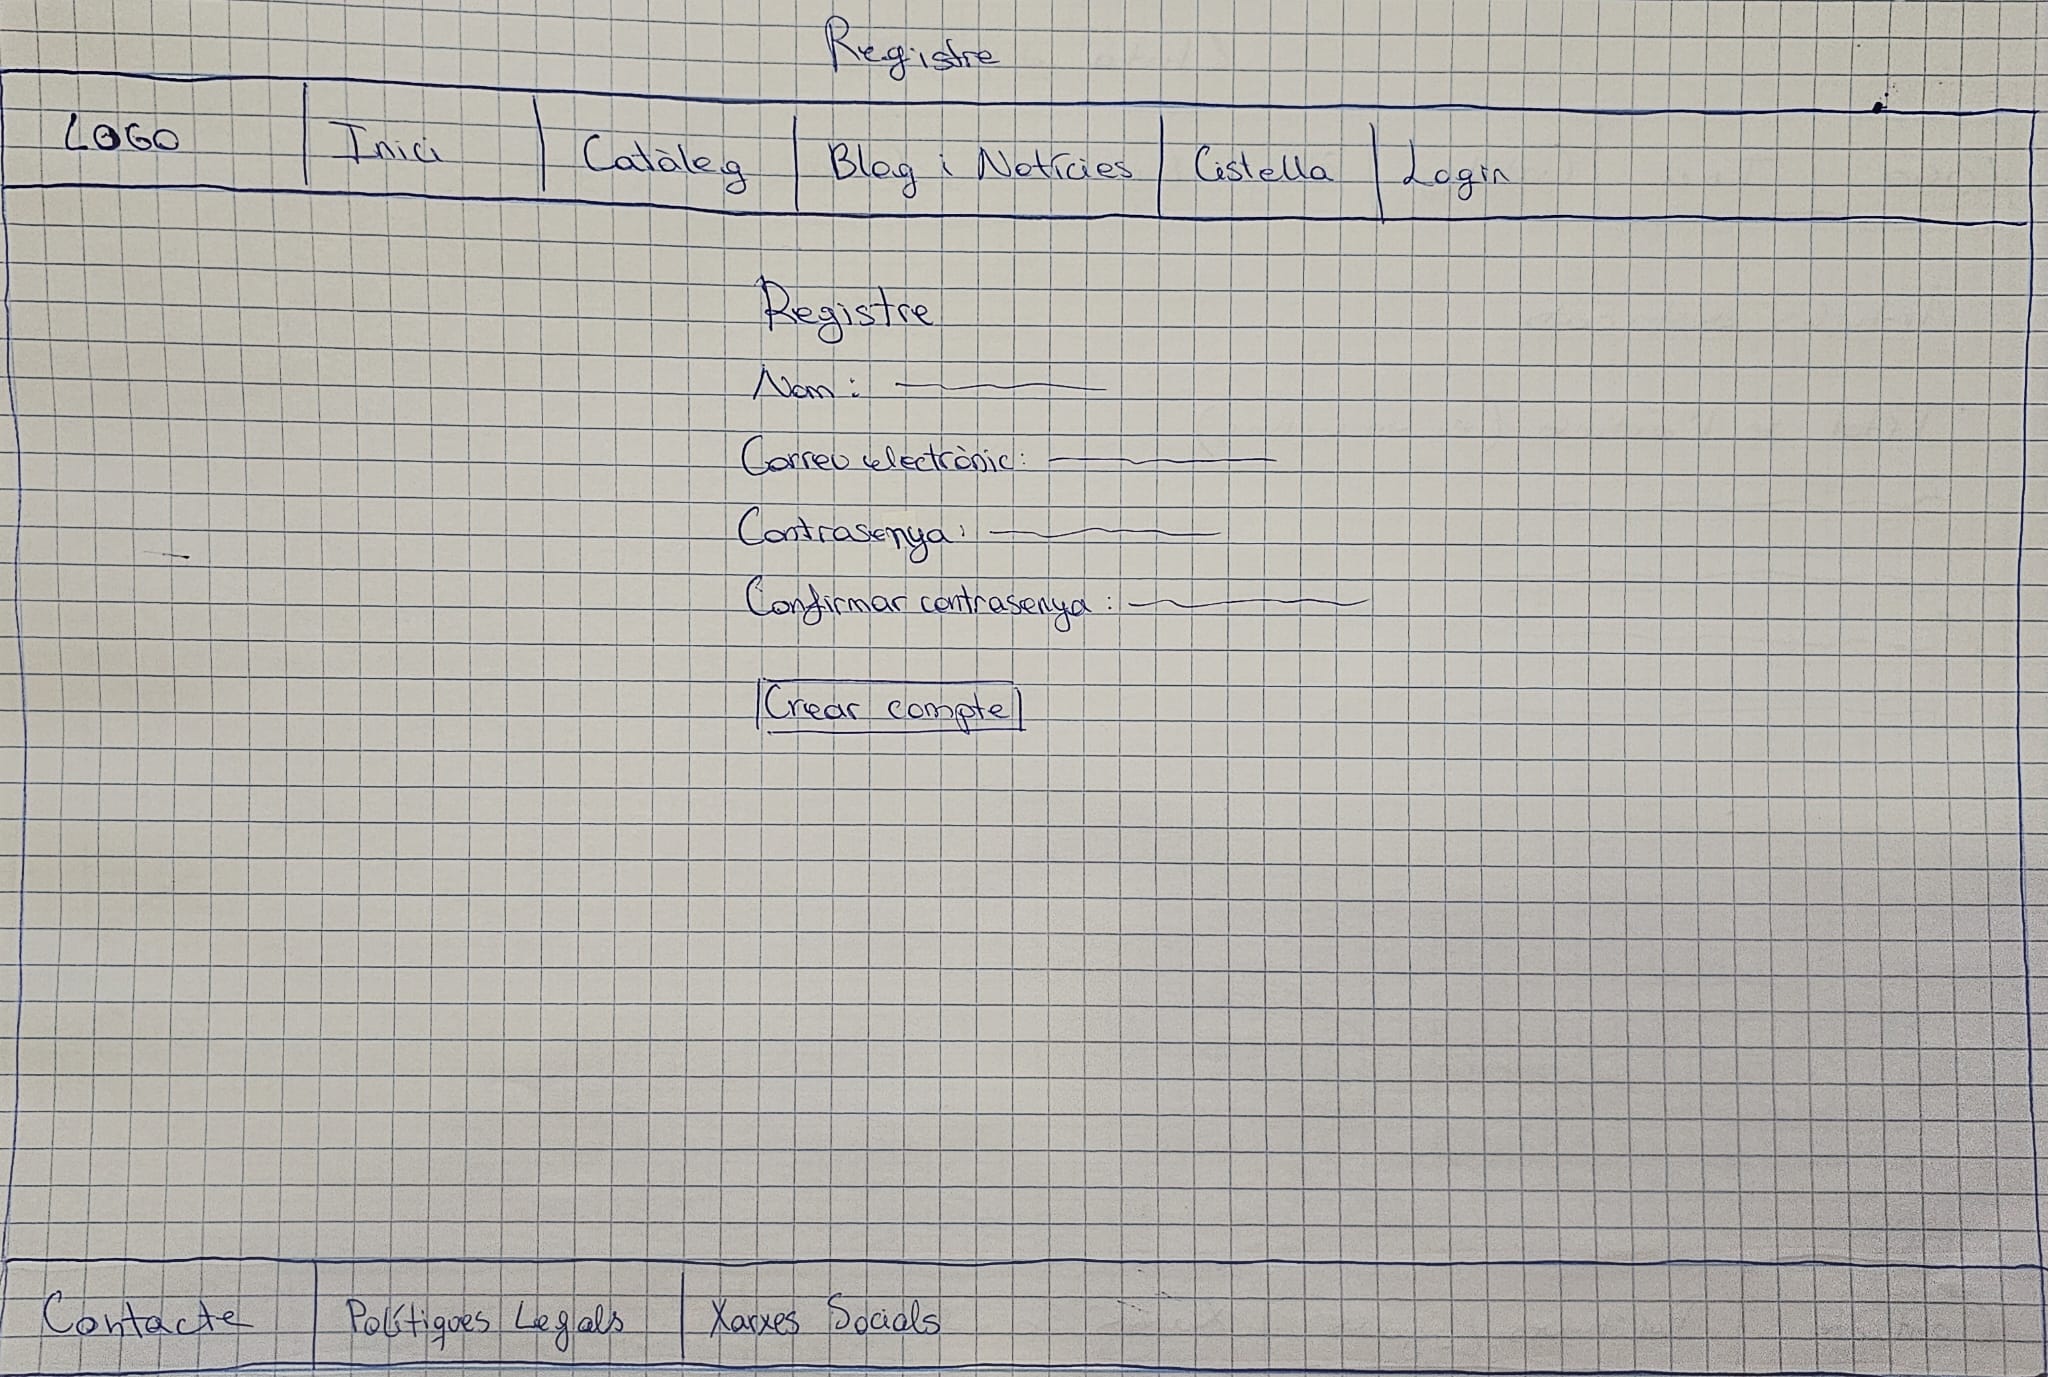 Registre
LOGO Inici Catàleg Blog i Notícies Cistella Login
Registre
Nom:
Correu electrònic:
Contrasenya:
Confirmar contrasenya:
Crear compte
Contacte Polítiques Legals Xarxes Socials